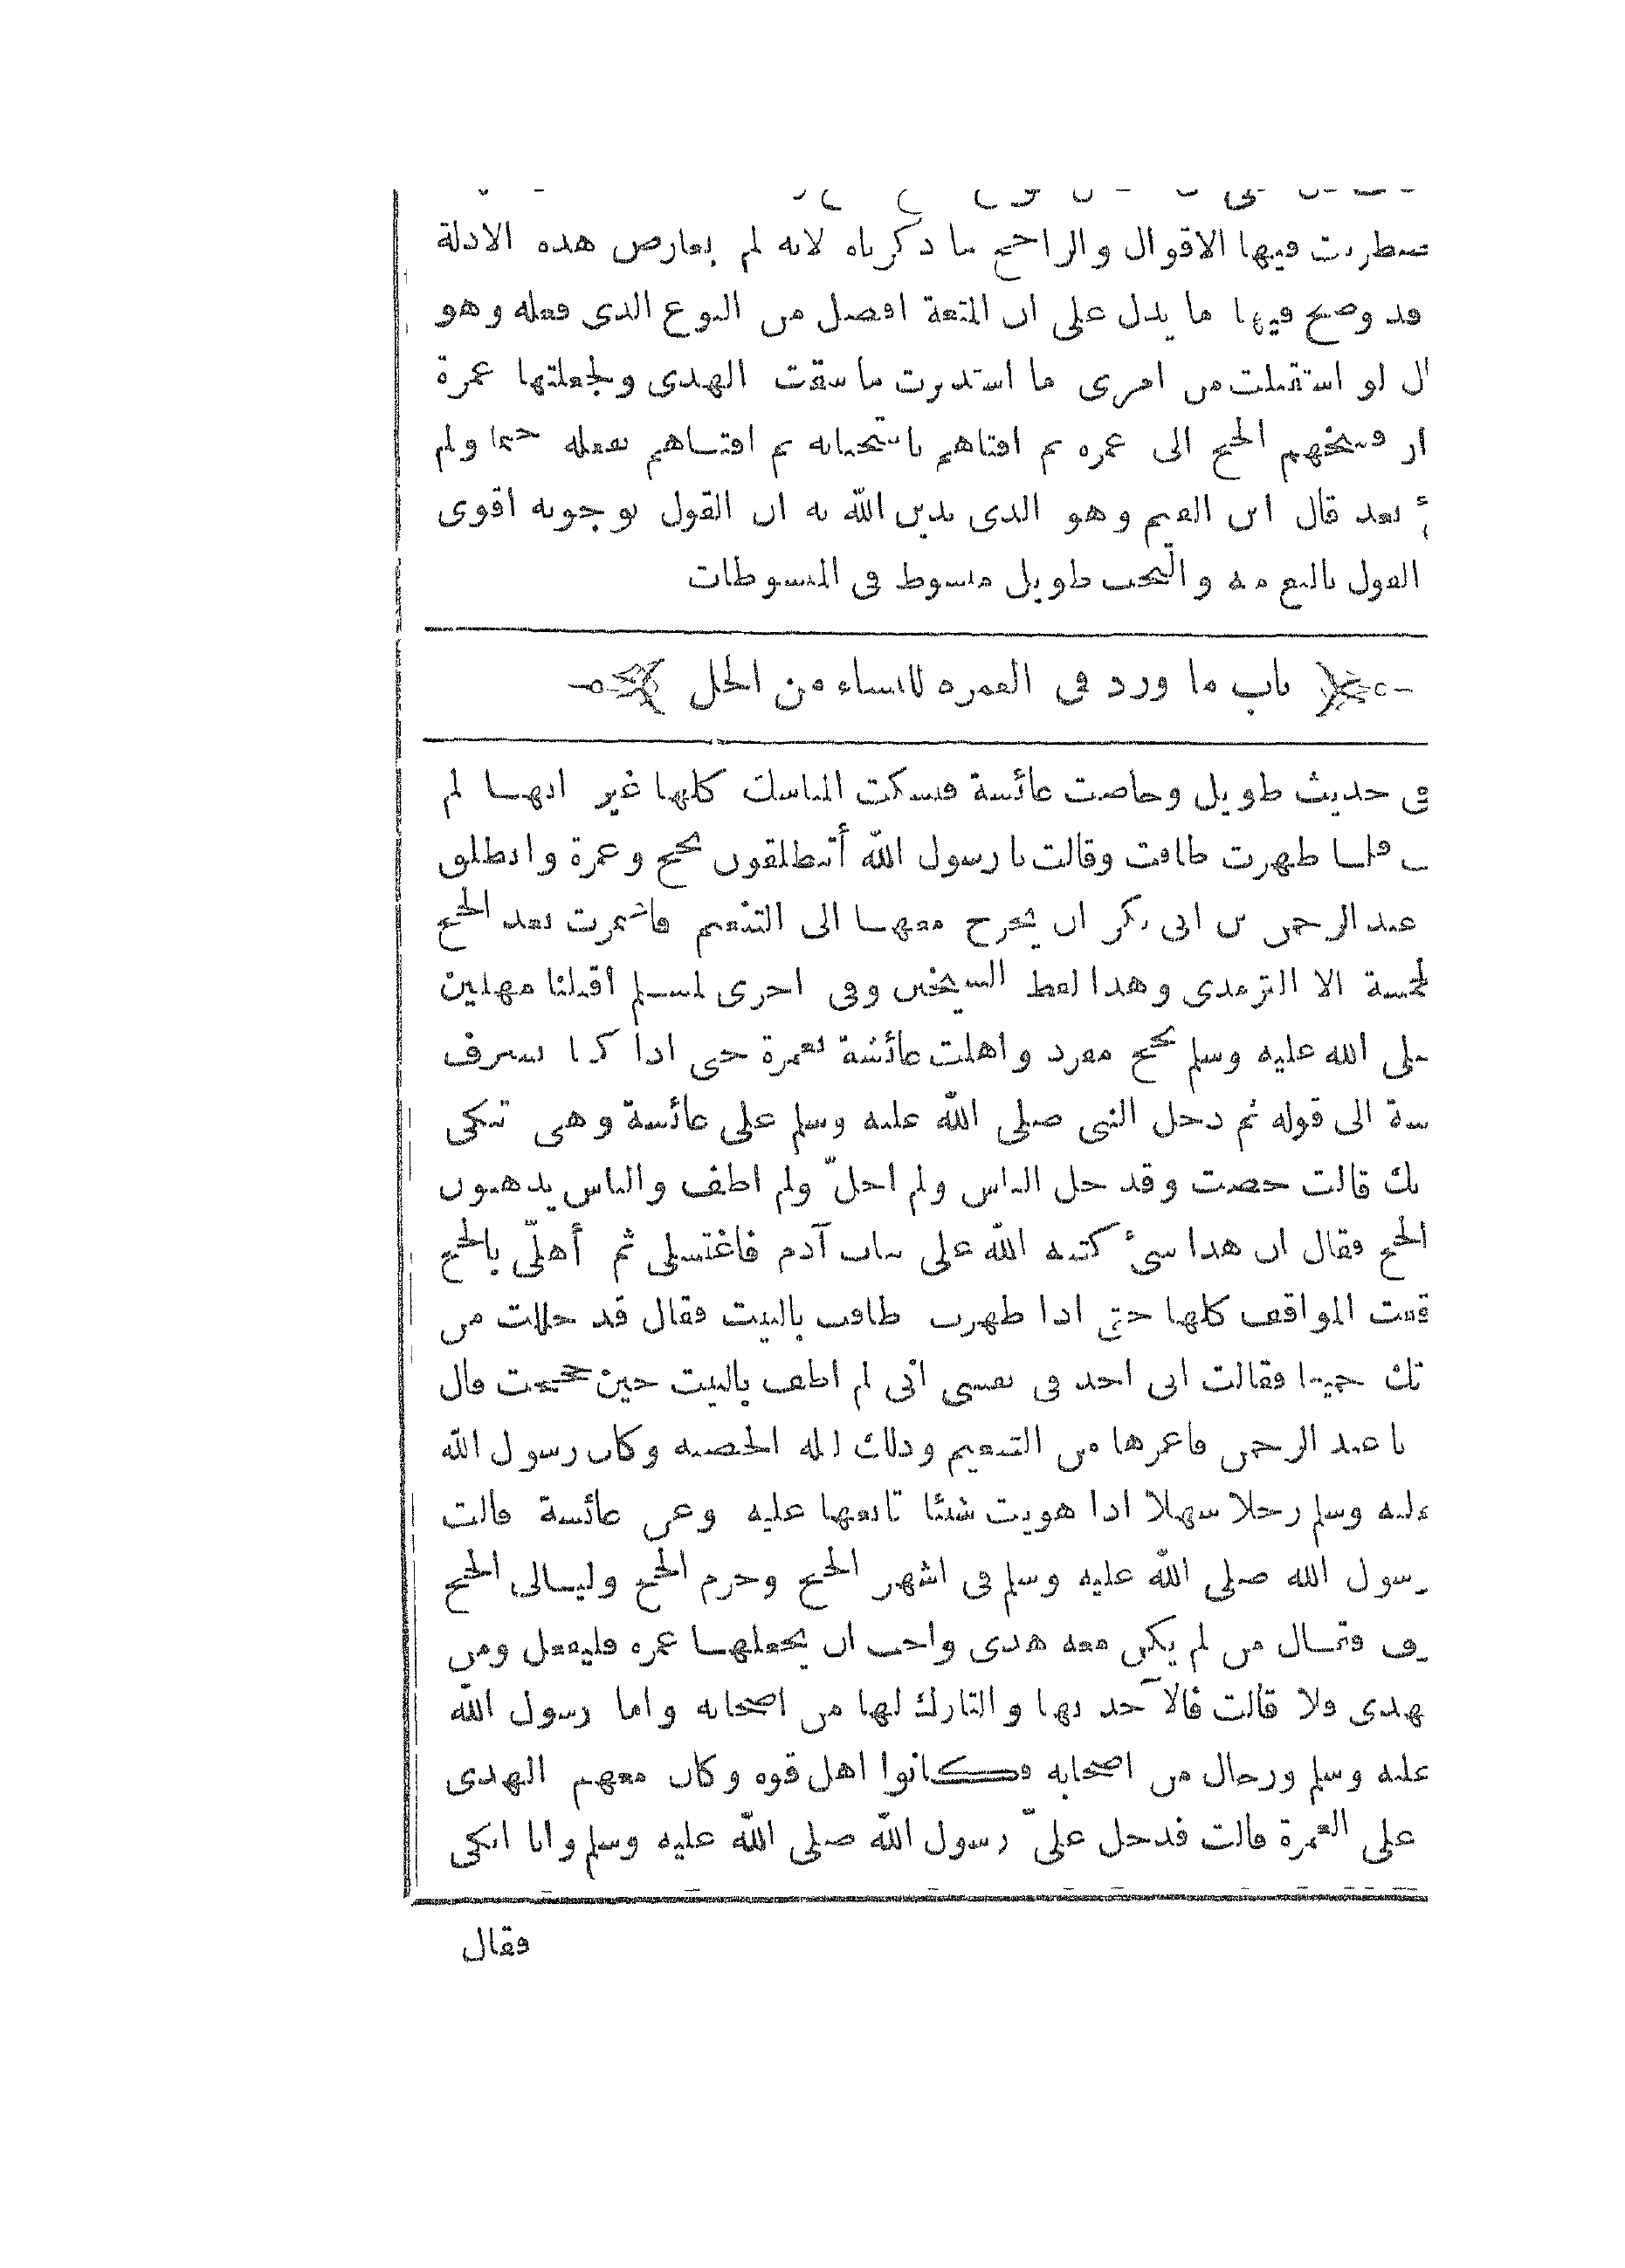 فيها الاقوال والراجح ما ذكرناه لانه لم يعارض هذه الادلة
قد وضح فيها ما يدل على ان المتعة افضل من النوع الذى فعله وهو
لو استقبلت من امرى ما استدبرت ما سقت الهدى ولجعلتها عمرة
فسخهم الحج الى عمره ثم افتاهم باستحبابه ثم افتاهم بفعله حتما ولم
بعد قال ابن القيم وهو الذى ندين الله به ان القول بوجوبه اقوى
القول بالمنع منه والبحث طويل مبسوط فى المبسوطات
باب ما ورد فى العمره للنساء من الحل
فى حديث طويل وحاضت عائشة فنسكت المناسك كلها غير انهـا لم
فلمـا طهرت طافت وقالت يا رسول الله أتنطلقون بحج وعمرة وانطلق
عبد الرحمن بن ابى بكر ان يخرج معهـا الى التنعيم فاعتمرت بعد الحج
الا الترمذى وهذا لفظ الشيخين وفى اخرى لمسـلم اقبلنا مهلين
الله عليه وسلم بحج مفرد واهلت عائشة بعمرة حتى اذا كنا بسرف
الى قوله ثم دخل النبى صلى الله عليه وسلم على عائشة وهى تبكى
قالت حضت وقد حل الناس ولم احلّ ولم اطف والناس يذهبون
الحج فقال ان هذا شىء كتبه الله على بنات آدم فاغتسلى ثم أهلّى بالحج
المواقف كلها حتى اذا طهرت طافت بالبيت فقال قد حللت من
جميعا فقالت انى اجد فى نفسى انى لم اطف بالبيت حين حججت قال
يا عبد الرحمن فاعمرها من التنعيم وذلك ليلة الحصبه وكان رسول الله
وسلم رجلا سهلا اذا هويت شيئا تابعها عليه وعن عائشة قالت
رسول الله صلى الله عليه وسلم فى اشهر الحج وحرم الحج وليـالى الحج
فقـال من لم يكن معه هدى واحب ان يجعلهـا عمره فليفعل ومن
فلا قالت فالآخذ بها والتارك لها من اصحابه واما رسول الله
عليه وسلم ورجال من اصحابه فكانوا اهل قوه وكان معهم الهدى
على العمرة قالت فدخل علىّ رسول الله صلى الله عليه وسلم وانا ابكى
فقال